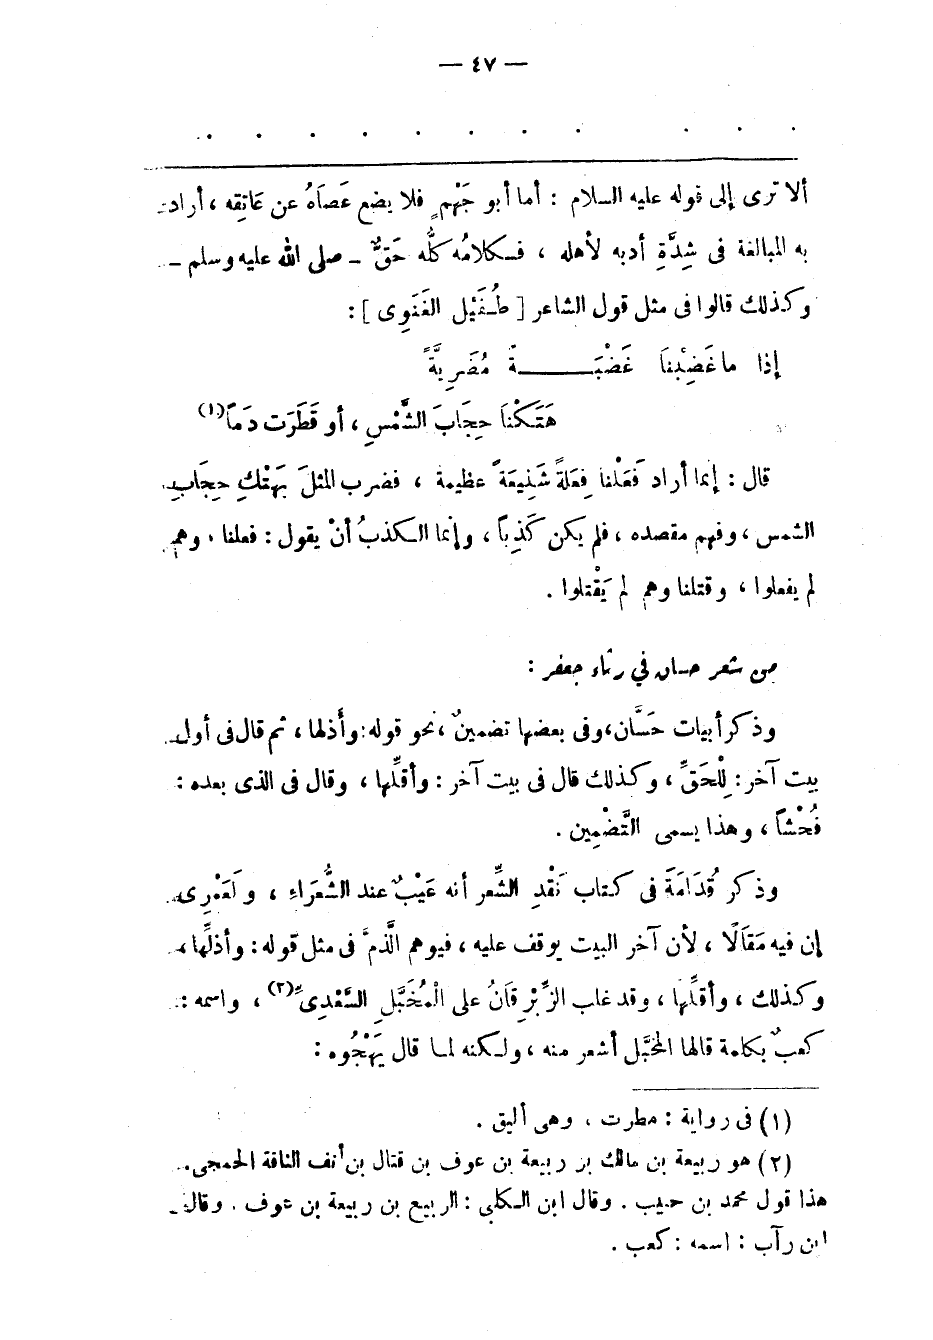 — ٤٧ —
. . . . . . . . . . .
ألا ترى إلى قوله عليه السلام : أما أبو جَهْمٍ فلا يضع عَصَاهُ عن عَاتِقه ، أراد
به المبالغة فى شِدَّةِ أدبه لأهله ، فـكلامُه كلُّه حَقٌّ ــ صلى الله عليه وسلم ــ
وكذلك قالوا فى مثل قول الشاعر [ طُـفَيْل الغَنَوِى ] :
إذا ما غَضِبْنَا غَضْبَـــــــةً مُضَرِيَّةً
هَتَكْنَا حِجَابَ الشَّمْسِ ، أو قَطَرَت دَمَاً(١)
قال : إنما أراد فَعَلْنا فِعَلَةً شَنِيعَةً عظيمة ، فضرب المثلَ بَهَتْكِ حِجَابِ
الشمس ، وفهم مقصده ، فلم يكن كَذِباً ، وإنما الـكذبُ أنْ يقول : فعلنا ، وهم
لم يفعلوا ، وقتلنا وهم لم يَقْتلوا .
من شعر حسان في رثاء جعفر :
وذكر أبيات حَسَّان، وفى بعضها تضمينٌ ، نحو قوله: وأَذلها ، ثم قال فى أول
بيت آخر : لِلْحَقِّ ، وكذلك قال فى بيت آخر : وأقلِّها ، وقال فى الذى بعده :
فُحْشاً ، وهذا يسمى التَّضْمِين .
وذكر قُدَامَةَ فى كتاب نَقْدِ الشِّعر أنه عَيْبٌ عند الشُّعَرَاءِ ، ولَعَمْرِى
إن فيه مَقَالًا ، لأن آخر البيت يوقف عليه ، فيوهم الَّذمَّ فى مثل قوله : وأذلِّها ،
وكذلك ، وأقلِّها ، وقد غلب الزِّبْرِقَانُ على الْمُخَبَّلِ السَّعْدِىِّ(٢) ، واسمه :
كعبٌ بكلمة قالها المخَبَّل أشعر منه ، ولـكنه لمـا قال يَهْجُوه :
(١) فى رواية : مطرت ، وهى أليق .
(٢) هو ربيعة بن مالك بن ربيعة بن عوف بن قتال بن أنف الناقة الجمحى.
هذا قول محمد بن حبيب . وقال ابن الـكلبى : الربيع بن ربيعة بن عوف . وقال
ابن رآب : اسمه : كعب .